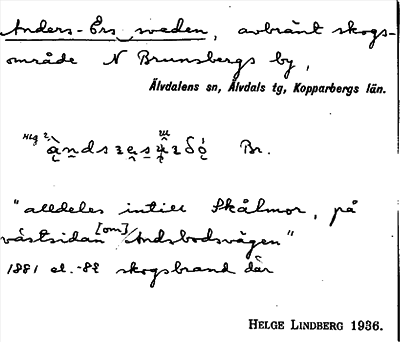 Anders-Ers sweden, avbränt skogs-
område N Brunsbergs by,
Älvdalens sn, Älvdals tg, Kopparbergs län.
Br.
"alldeles intill Skålmor, på
västsidan [om] Andsbodsvägen"
1881 el. -82 skogsbrand där
HELGE LINDBERG 1936.